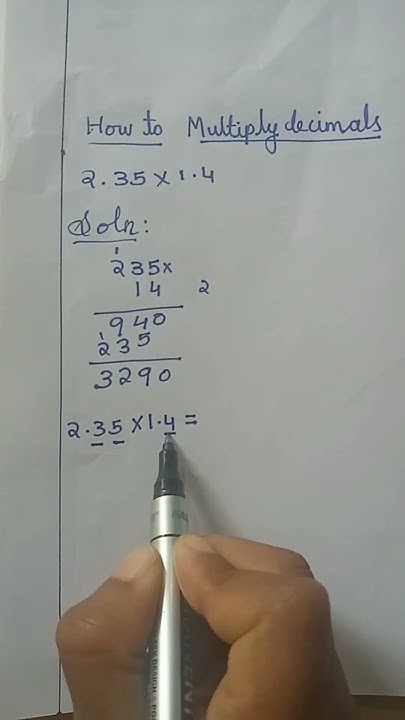 How to Multiply decimals
2.35 x 1.4
Soln:
1
235x
14 2
940
1
235
3290
2.35 x 1.4 =